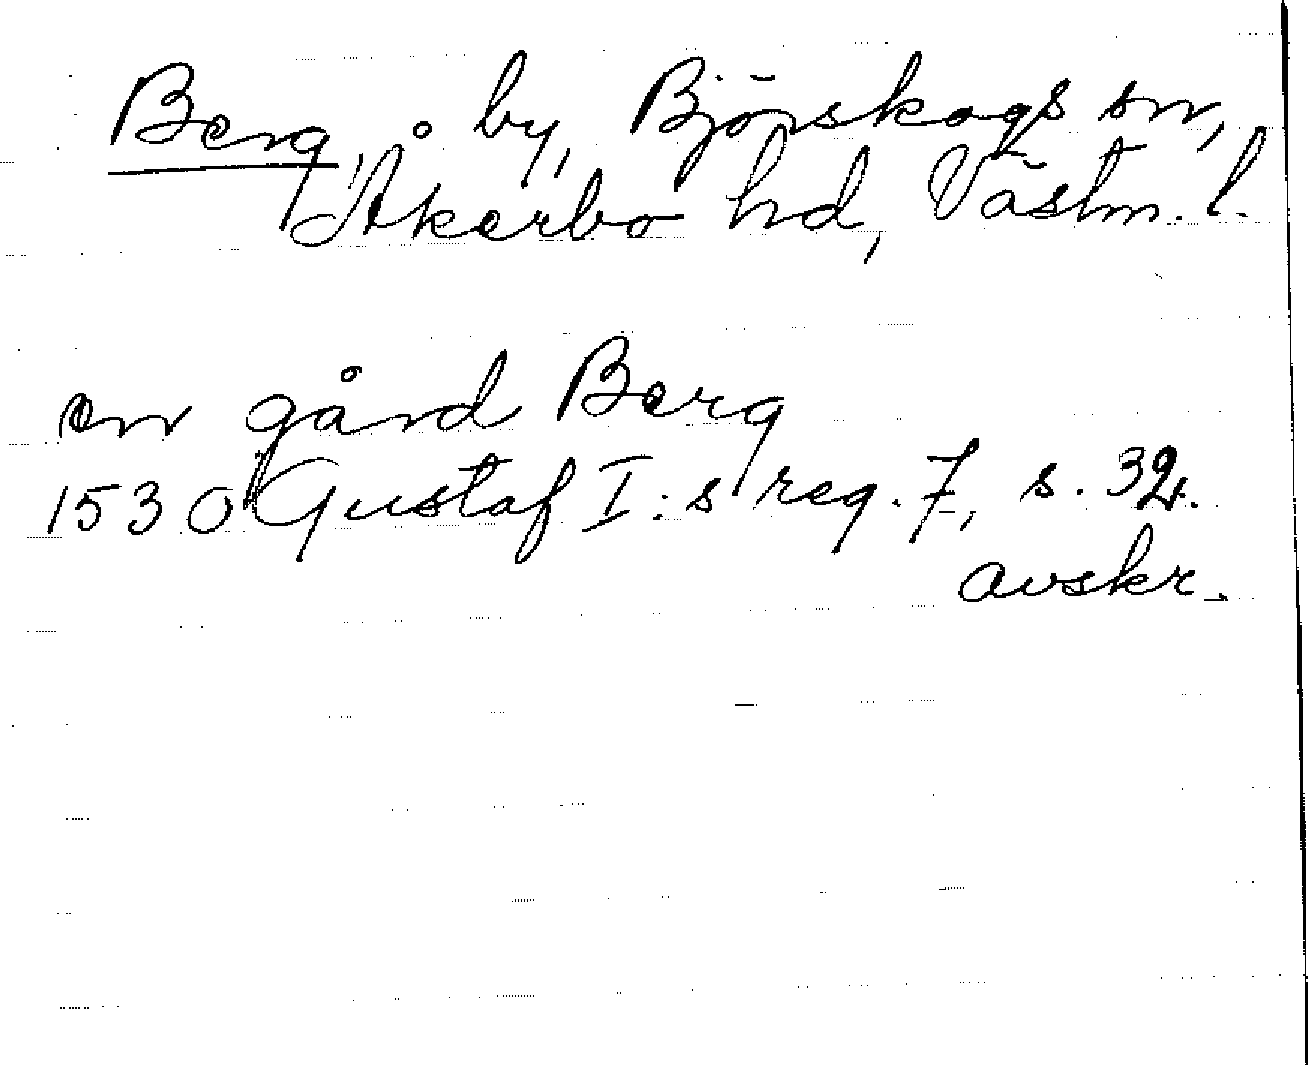 Berg, by, Björskogs sn,
Åkerbo hd, Västm. l.
en gård Berg
1530 Gustaf I:s reg. 7, s. 32.
avskr.